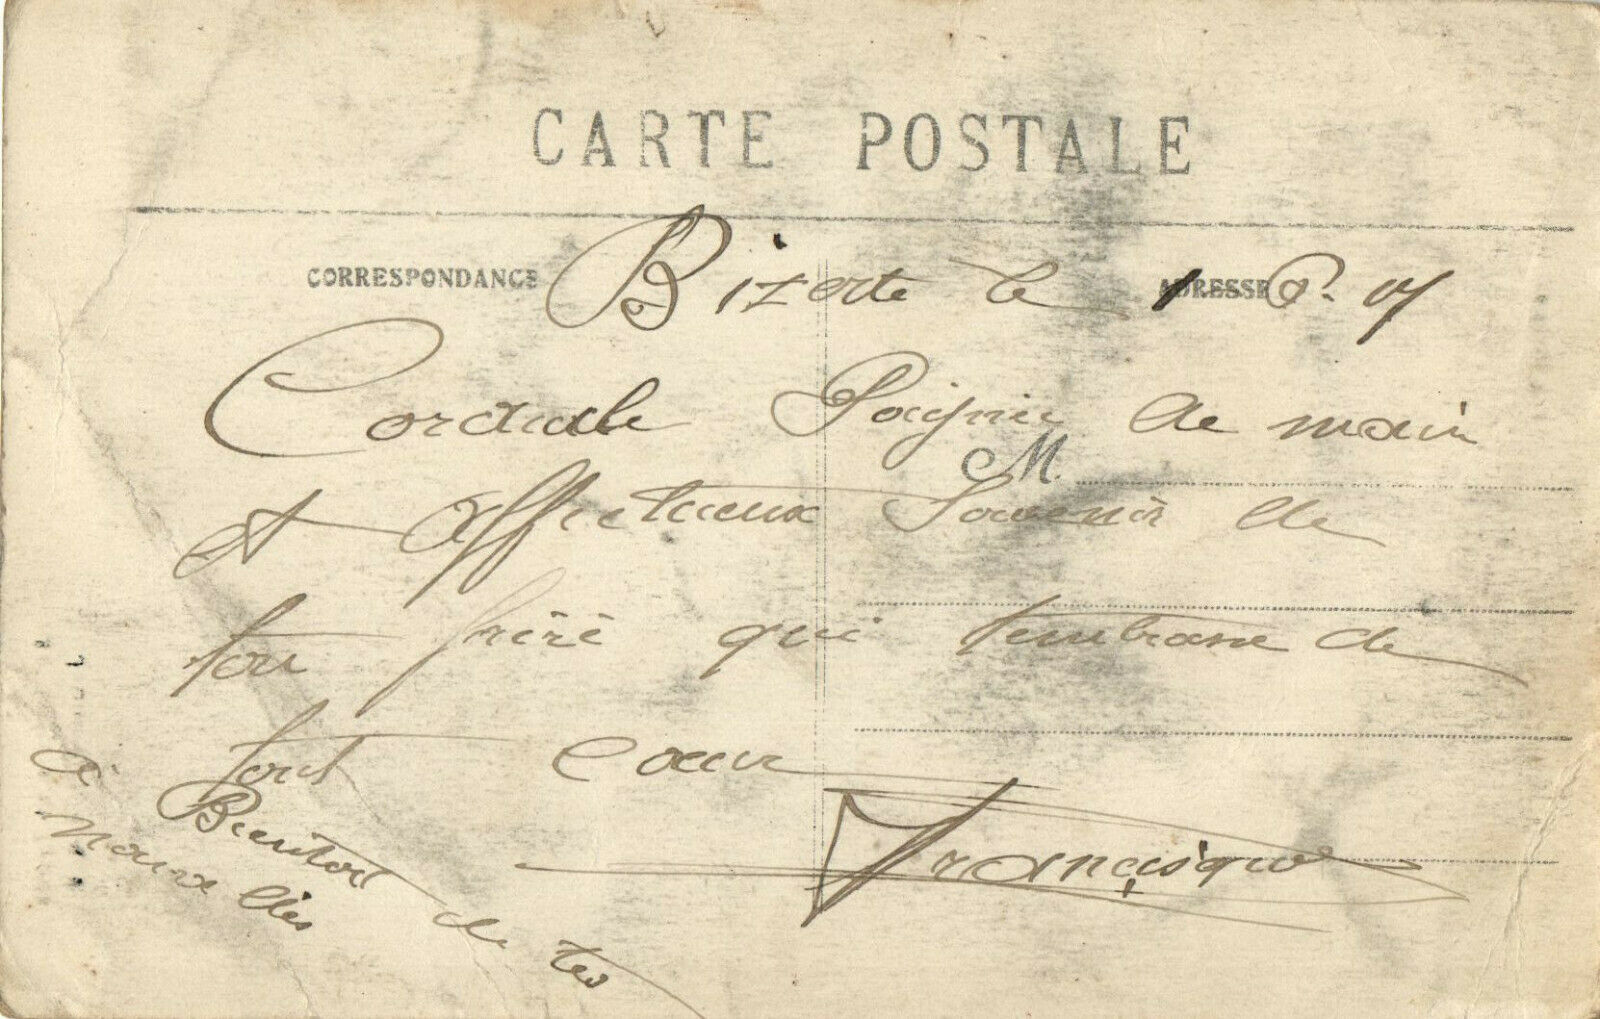 CARTE POSTALE
CORRESPONDANCE
ADRESSE
Bizerte le 1
Cordiale Poignie de main
M.
et affectueux Souvenir de
ton frère qui t'embrasse de
tout Coeur
Francisque
à Bientot de tes
nouvelles